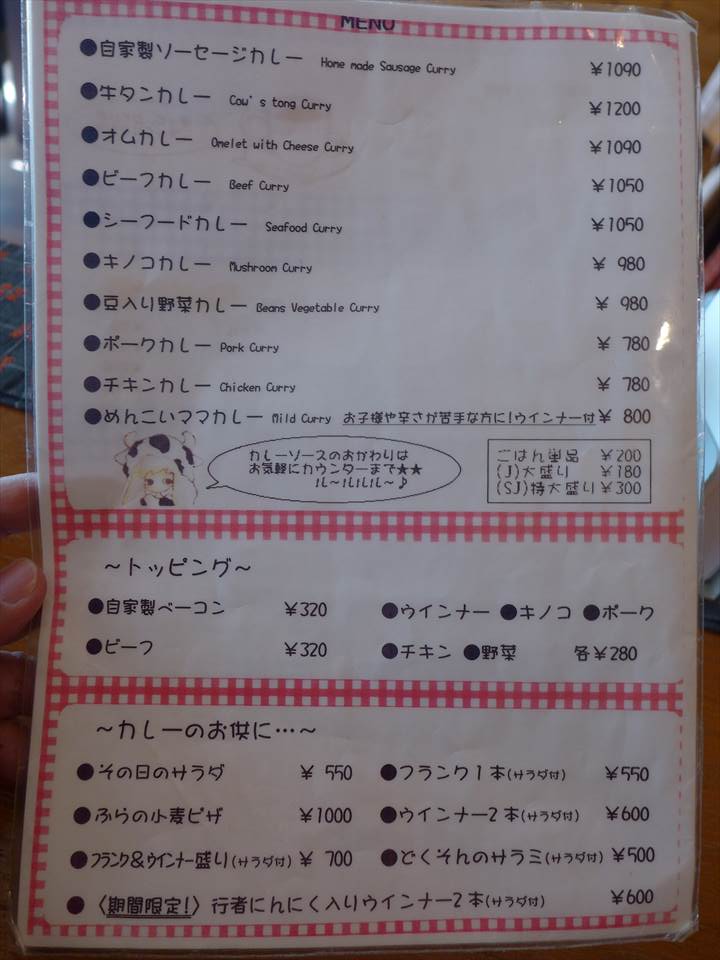 MENU
●自家製ソーセージカレー Home made Sausage Curry ￥1090
●牛タンカレー Cow's tong Curry ￥1200
●オムカレー Omelet with Cheese Curry ￥1090
●ビーフカレー Beef Curry ￥1050
●シーフードカレー Seafood Curry ￥1050
●キノコカレー Mushroom Curry ￥ 980
●豆入り野菜カレー Beans Vegetable Curry ￥ 980
●ポークカレー Pork Curry ￥ 780
●チキンカレー Chicken Curry ￥ 780
●めんこいママカレー Mild Curry お子様や辛さが苦手な方に!ウインナー付 ￥ 800
カレーソースのおかわりは
お気軽にカウンターまで★★
ル～ルルル～♪
ごはん単品 ￥200
(J)大盛り ￥180
(SJ)特大盛り ￥300
～トッピング～
●自家製ベーコン ￥320 ●ウインナー ●キノコ ●ポーク
●ビーフ ￥320 ●チキン ●野菜 各￥280
～カレーのお供に…～
●その日のサラダ ￥ 550 ●フランク1本(サラダ付) ￥550
●ふらの小麦ピザ ￥1000 ●ウインナー2本(サラダ付) ￥600
●フランク&ウインナー盛り(サラダ付) ￥ 700 ●どくそんのサラミ(サラダ付) ￥500
● 〈期間限定!〉行者にんにく入りウインナー2本(サラダ付) ￥600